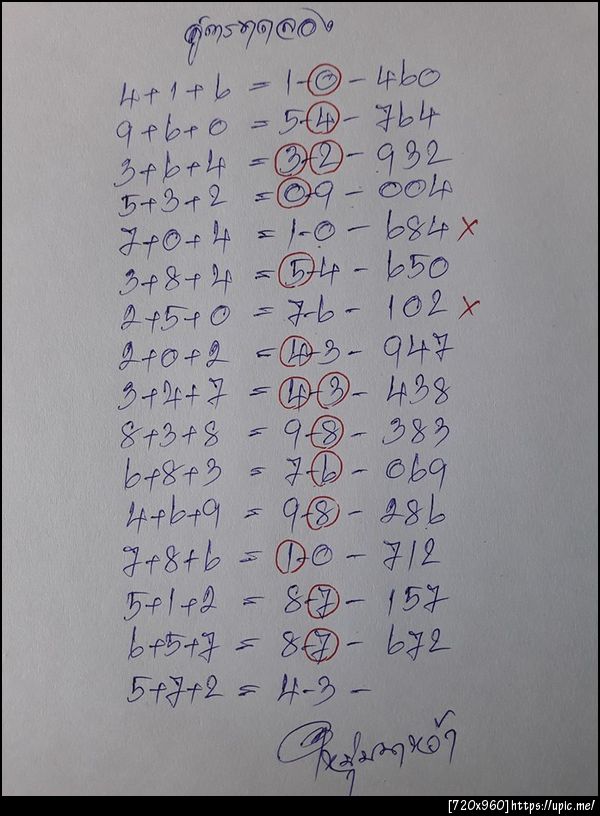 สูตรทดลอง
4+1+6 = 1-0 - 460
9+6+0 = 5-4 - 764
3+6+4 = 3-2 - 932
5+3+2 = 0-9 - 004
7+0+4 = 1-0 - 684 ×
3+8+4 = 5-4 - 650
2+5+0 = 7-6 - 102 ×
2+0+2 = 4-3 - 947
3+4+7 = 4-3 - 438
8+3+8 = 9-8 - 383
6+8+3 = 7-6 - 069
4+6+9 = 9-8 - 286
7+8+6 = 1-0 - 712
5+1+2 = 8-7 - 157
6+5+7 = 8-7 - 672
5+7+2 = 4-3 -
[720x960]https://upic.me/